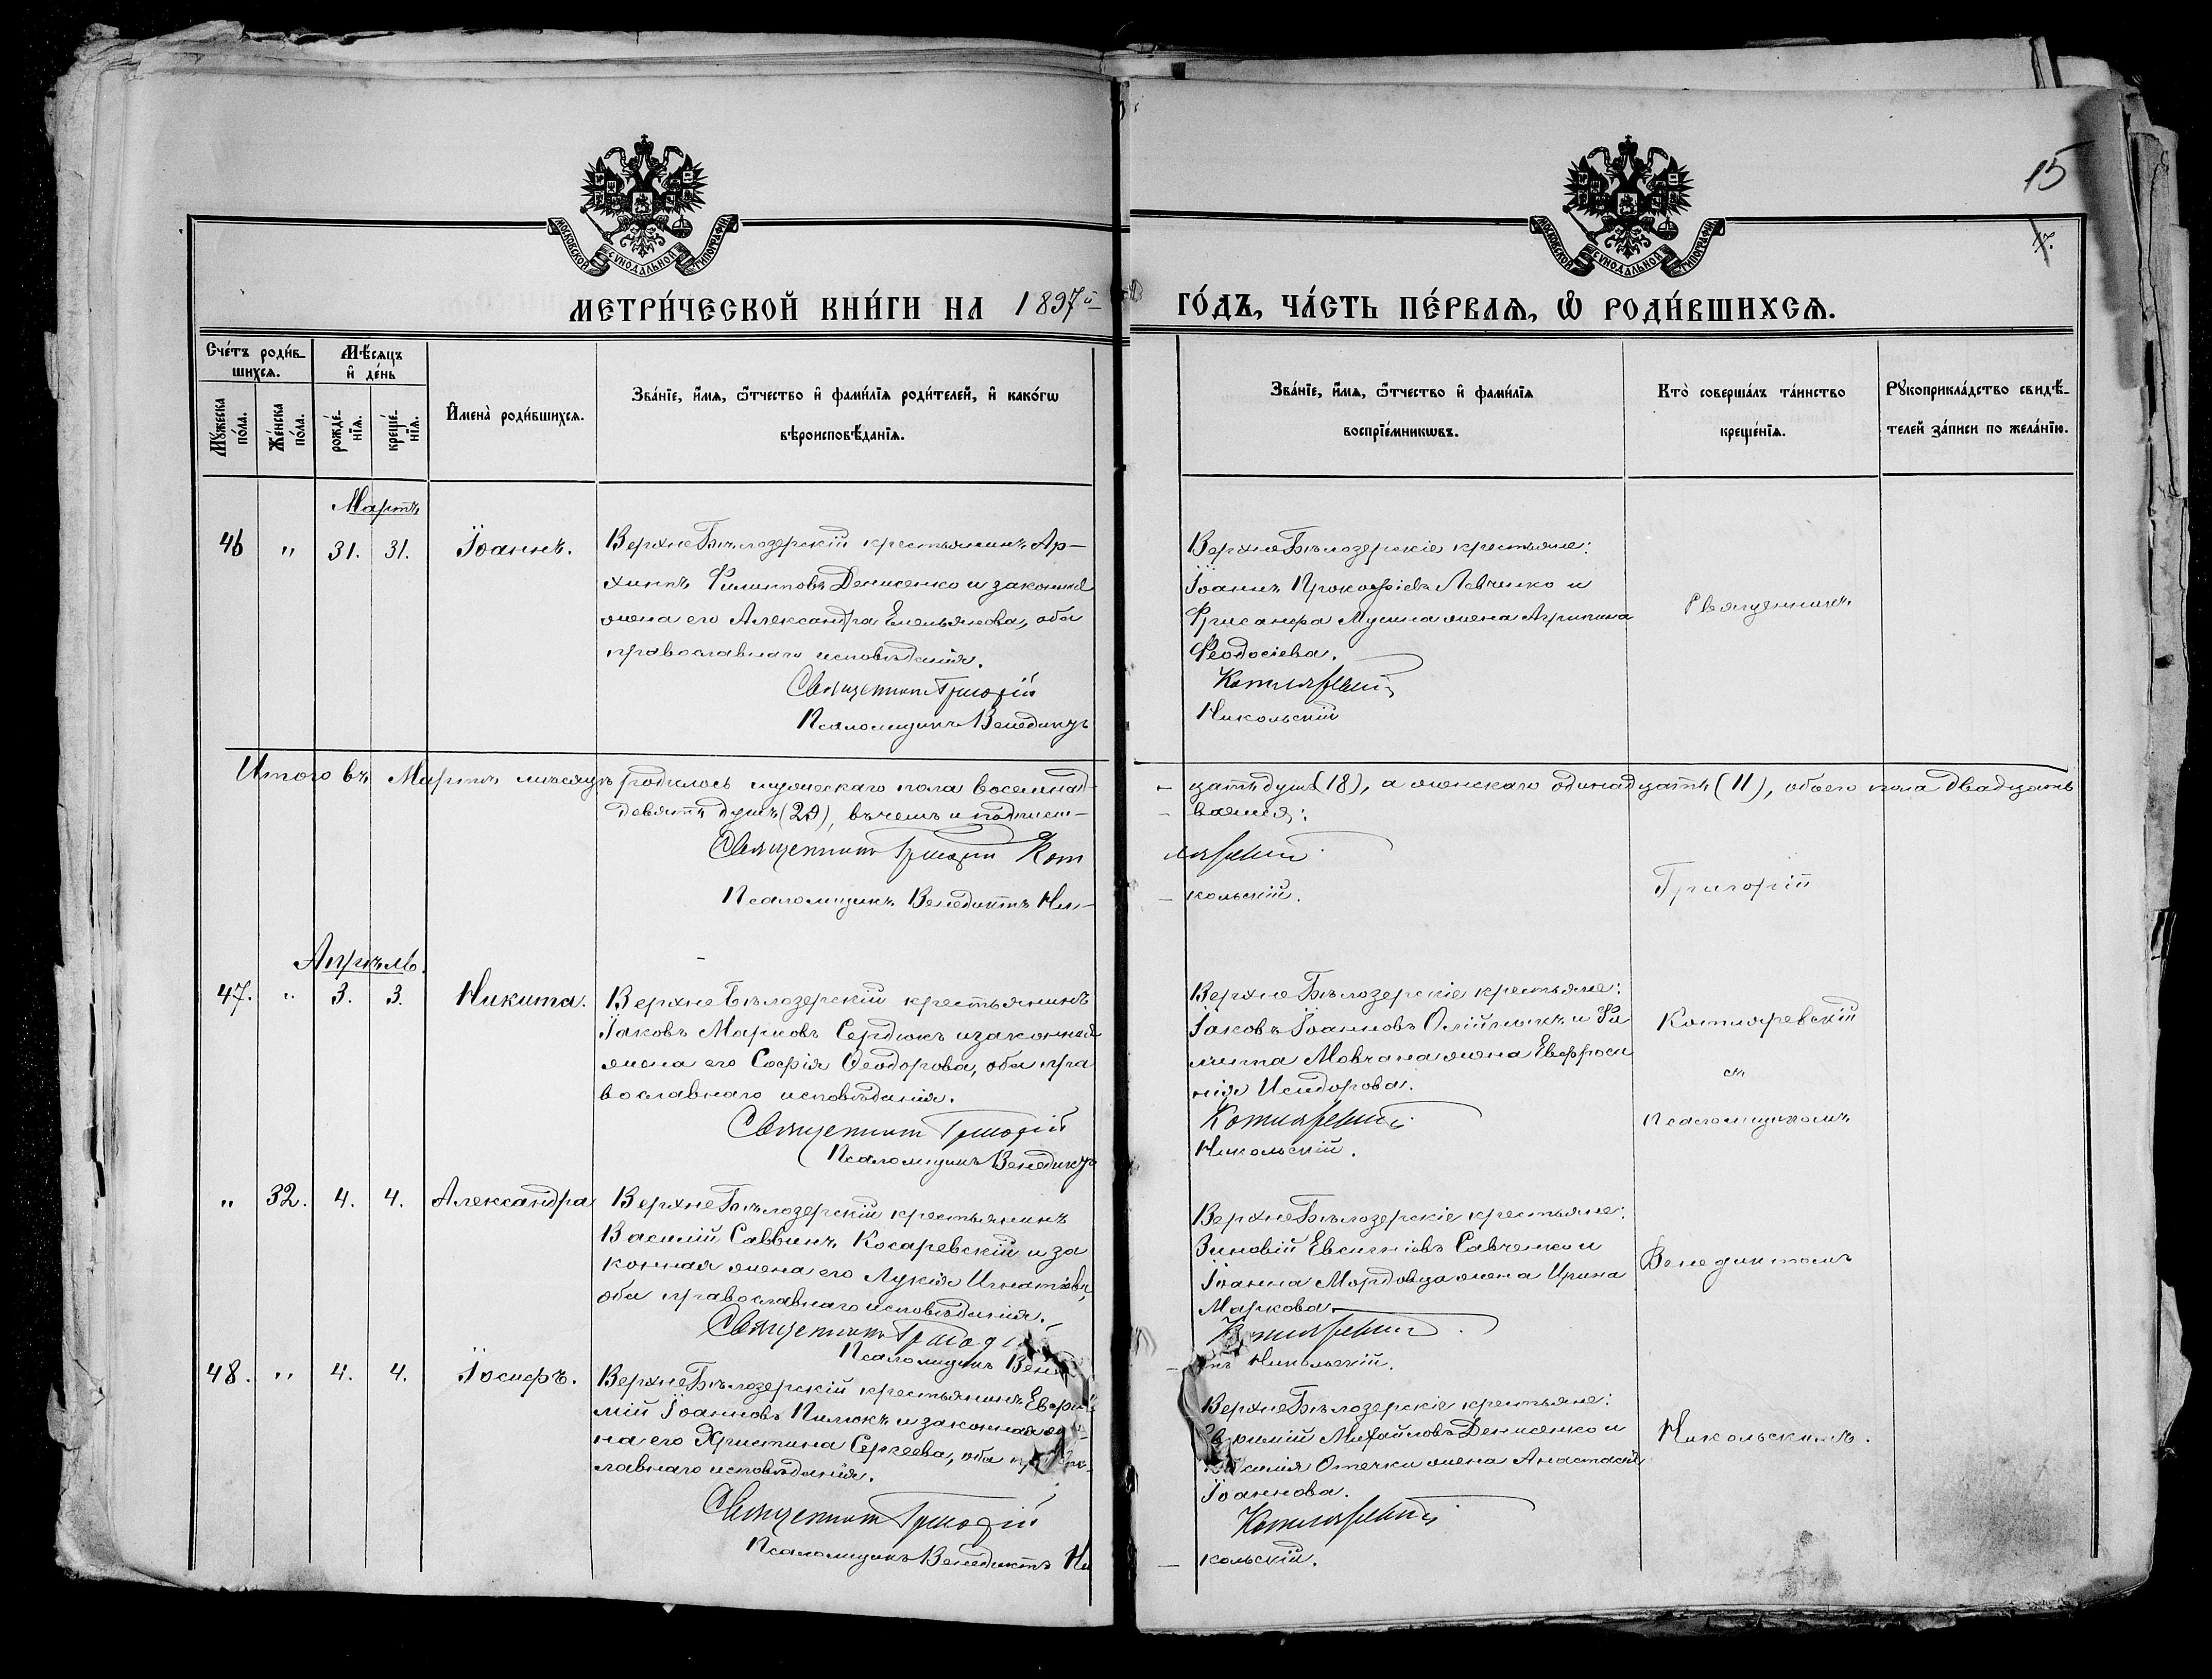 15
17.
МОСКОВСКОЙ СѴНОДАЛЬНОЙ ТИПОГРАФІИ
МОСКОВСКОЙ СѴНОДАЛЬНОЙ ТИПОГРАФІИ
МЕТРИ́ЧЕСКОЙ КНИ́ГИ НА 1897й
ГО́ДЪ, ЧА́СТЬ ПЕ́РВАѦ, Ѡ҆ РОДИ́ВШИХСѦ.
Сче́тъ роди́в-
шихсѧ.
Мꙋ́жеска
по́ла.
Же́нска
по́ла.
Мѣ́сѧцъ
и҆ де́нь
рожде́-
нїѧ.
креще́-
нїѧ.
И҆мена̀ роди́вшихсѧ.
Зва́нїе, и҆́мѧ, ѻ҆́тчество и҆ фами́лїѧ роди́телей, и҆ како́гѡ
вѣроисповѣ́данїѧ.
Зва́нїе, и҆́мѧ, ѻ҆́тчество и҆ фами́лїѧ
воспрїе́мникѡвъ.
Кто̀ соверша́лъ та́инство
креще́нїѧ.
Рꙋкоприкла́дство свидѣ́-
телей за́писи по жела́нїю.
Мартъ
46 " 31. 31. Іоаннъ.
ВерхнеБѣлозерскій крестьянинъ Ар-
хипъ Филипповъ Денисенко и законная
жена его Александра Емельянова, оба
православнаго исповѣданія.
Священникъ Григорій
Псаломщикъ Венедиктъ
ВерхнеБѣлозерскіе крестьяне:
Іоаннъ Прокофіевъ Левченко и
Хрисанфа Мусина жена Агрипина
Феодосіева.
Котляревскій
Никольскій
Священникъ
Итого въ Мартѣ мѣсяцѣ родилось мужескаго пола восемнад-
цать душъ (18), а женскаго одинадцать (11), обоего пола двадцать
девять душъ (29), въ чемъ и подписы-
ваемся:
Священникъ Григорій Кот
ляревскій
Псаломщикъ Венедиктъ Ни-
кольскій.
Григорій
Апрѣль.
47. " 3. 3. Никита.
ВерхнеБѣлозерскій крестьянинъ
Іаковъ Марковъ Сердюкъ и законная
жена его Софія Ѳеодорова, оба пра
вославнаго исповѣданія.
Священникъ Григорій
Псаломщикъ Венедиктъ
ВерхнеБѣлозерскіе крестьяне:
Іаковъ Іоанновъ Олійникъ и Фи
липпа Мовчана жена Евфроси
нія Исидорова.
Котляревскій
Никольскій.
Котляревскій
съ
псаломщикомъ
" 32. 4. 4. Александра
ВерхнеБѣлозерскій крестьянинъ
Василій Саввинъ Косаревскій и за
конная жена его Лукія Игнатіева,
оба православнаго исповѣданія.
Священникъ Григорій
Псаломщикъ Вене
ВерхнеБѣлозерскіе крестьяне:
Зиновій Евсигніевъ Савченко и
Іоанна Мордовца жена Ирина
Маркова.
Котляревскій
тъ Никольскій.
Венедиктомъ
48. " 4. 4. Іосифъ.
ВерхнеБѣлозерскій крестьянинъ Евфи
мій Іоанновъ Пилюкъ и законная же
на его Христина Сергеева, оба право-
славнаго исповѣданія.
Священникъ Григорій
Псаломщикъ Венедиктъ Ни
ВерхнеБѣлозерскіе крестьяне:
Михайловъ Денисенко и
жена Анастасія
Іоаннова.
Котляревскій
кольскій.
Никольскимъ.